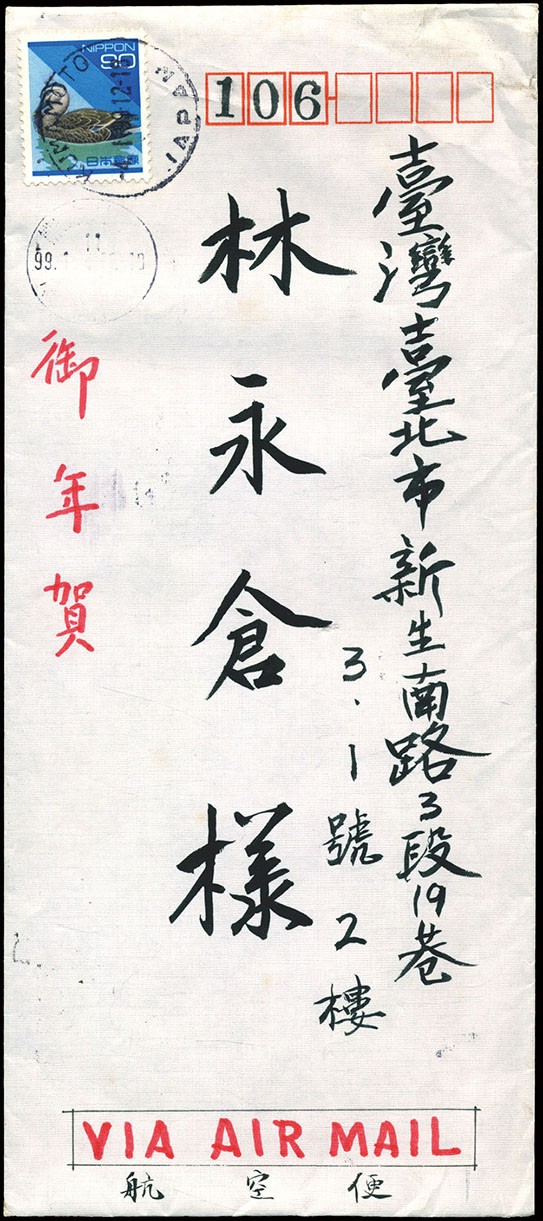 NIPPON
90
日本郵便
JAPAN
106
臺灣臺北市新生南路3段19巷
3.1號2樓
林永倉樣
御年賀
VIA AIR MAIL
航空便